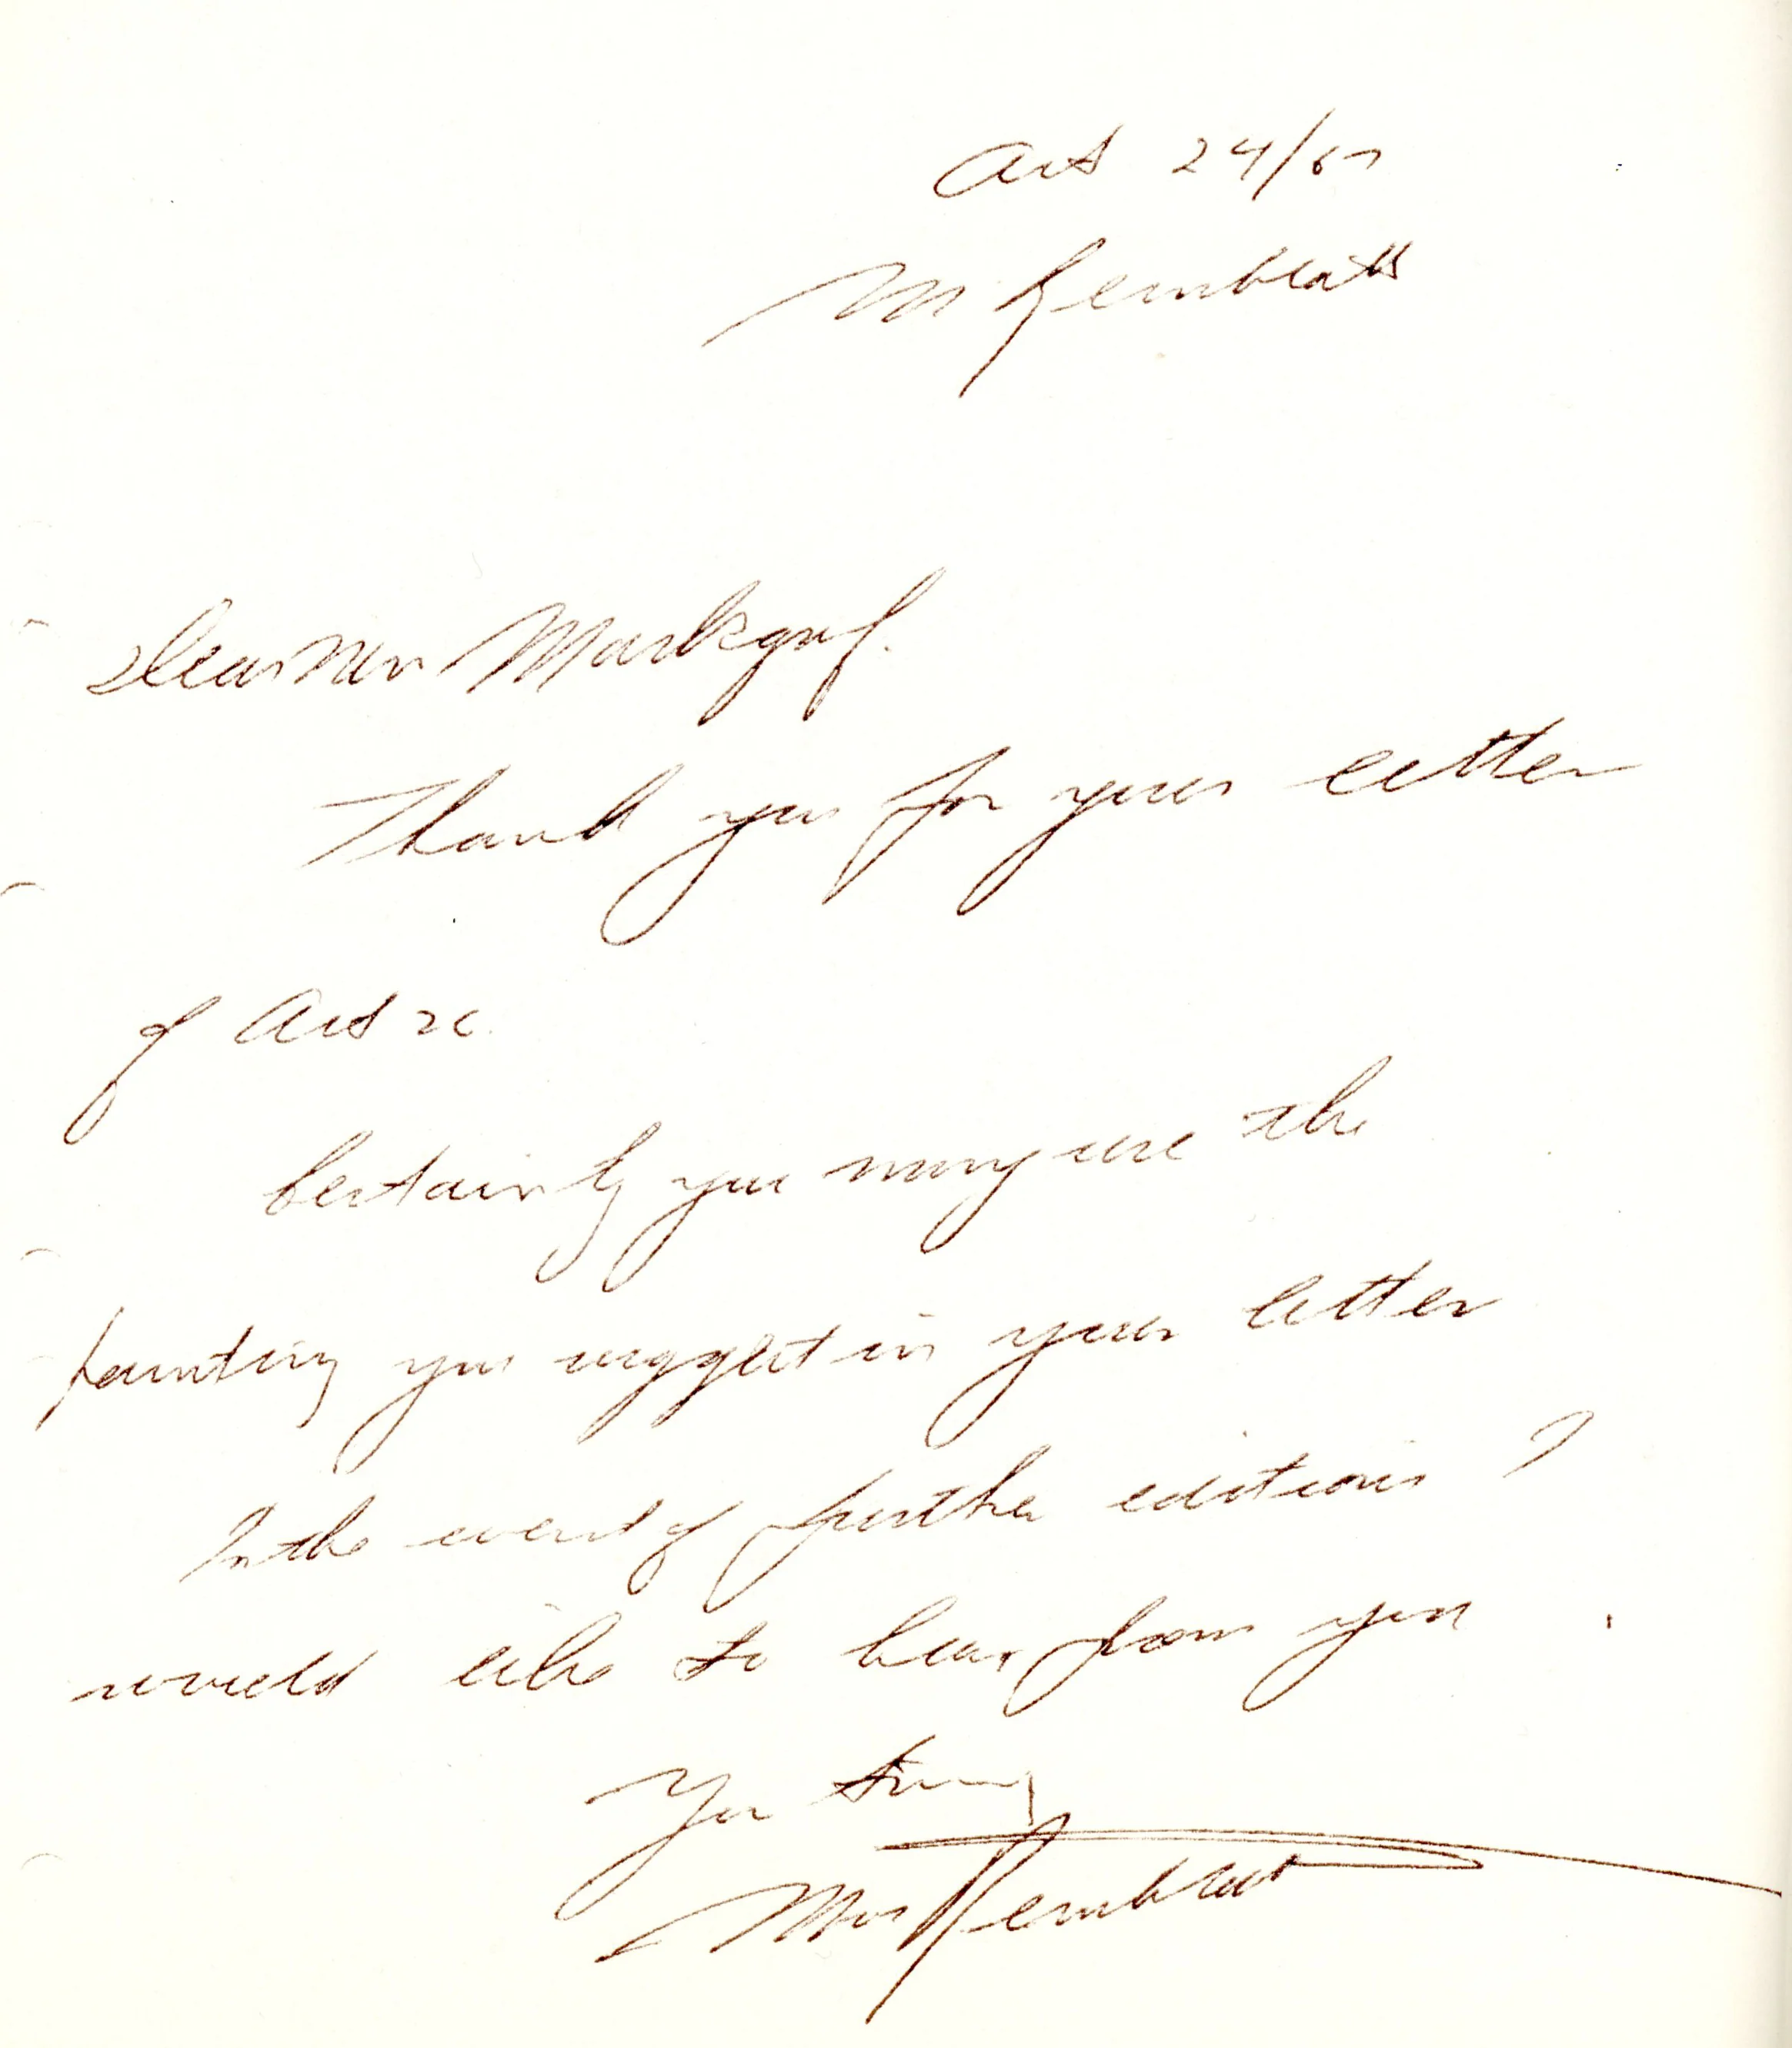 Oct 24/67
M Kernblatt
Dear Mr Markgraf.
Thank you for your letter
of Oct
Certainly you may use the
painting you suggest in your letter
In the event of further editions I
would like to hear from you